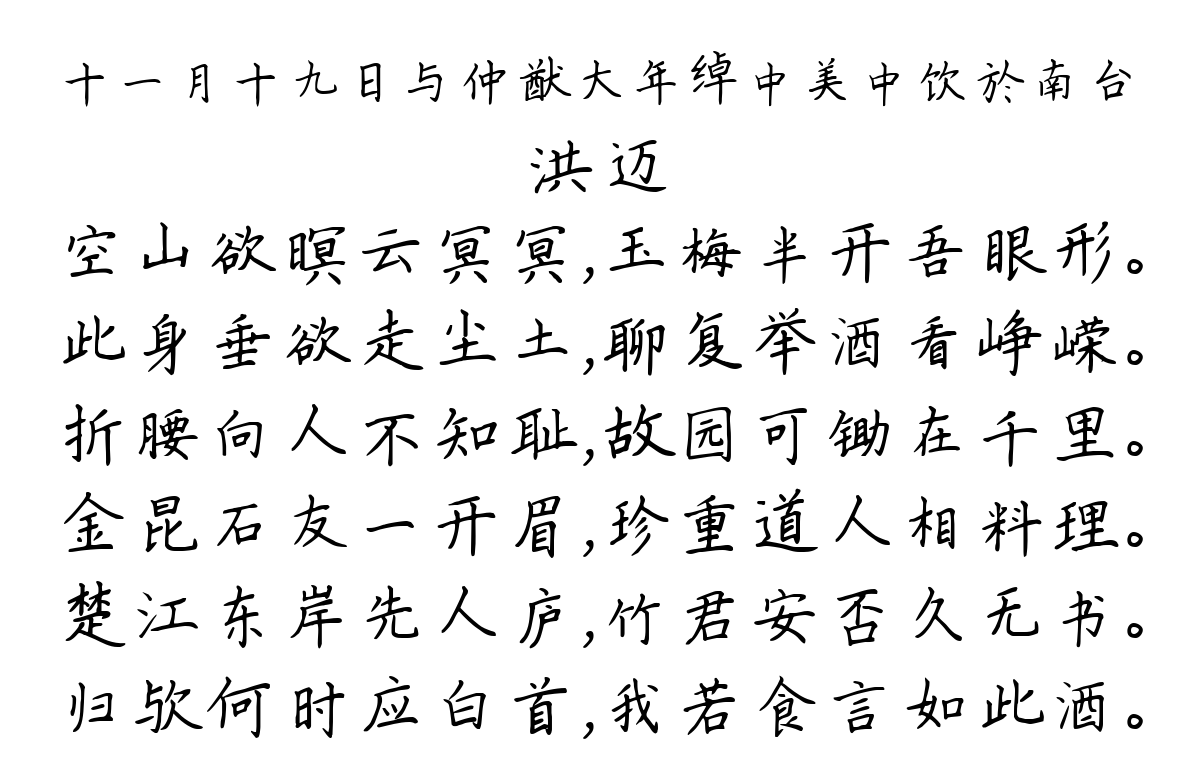 十一月十九日与仲猷大年绰中美中饮於南台
洪迈
空山欲暝云冥冥,玉梅半开吾眼形。
此身垂欲走尘土,聊复举酒看峥嵘。
折腰向人不知耻,故园可锄在千里。
金昆石友一开眉,珍重道人相料理。
楚江东岸先人庐,竹君安否久无书。
归欤何时应白首,我若食言如此酒。